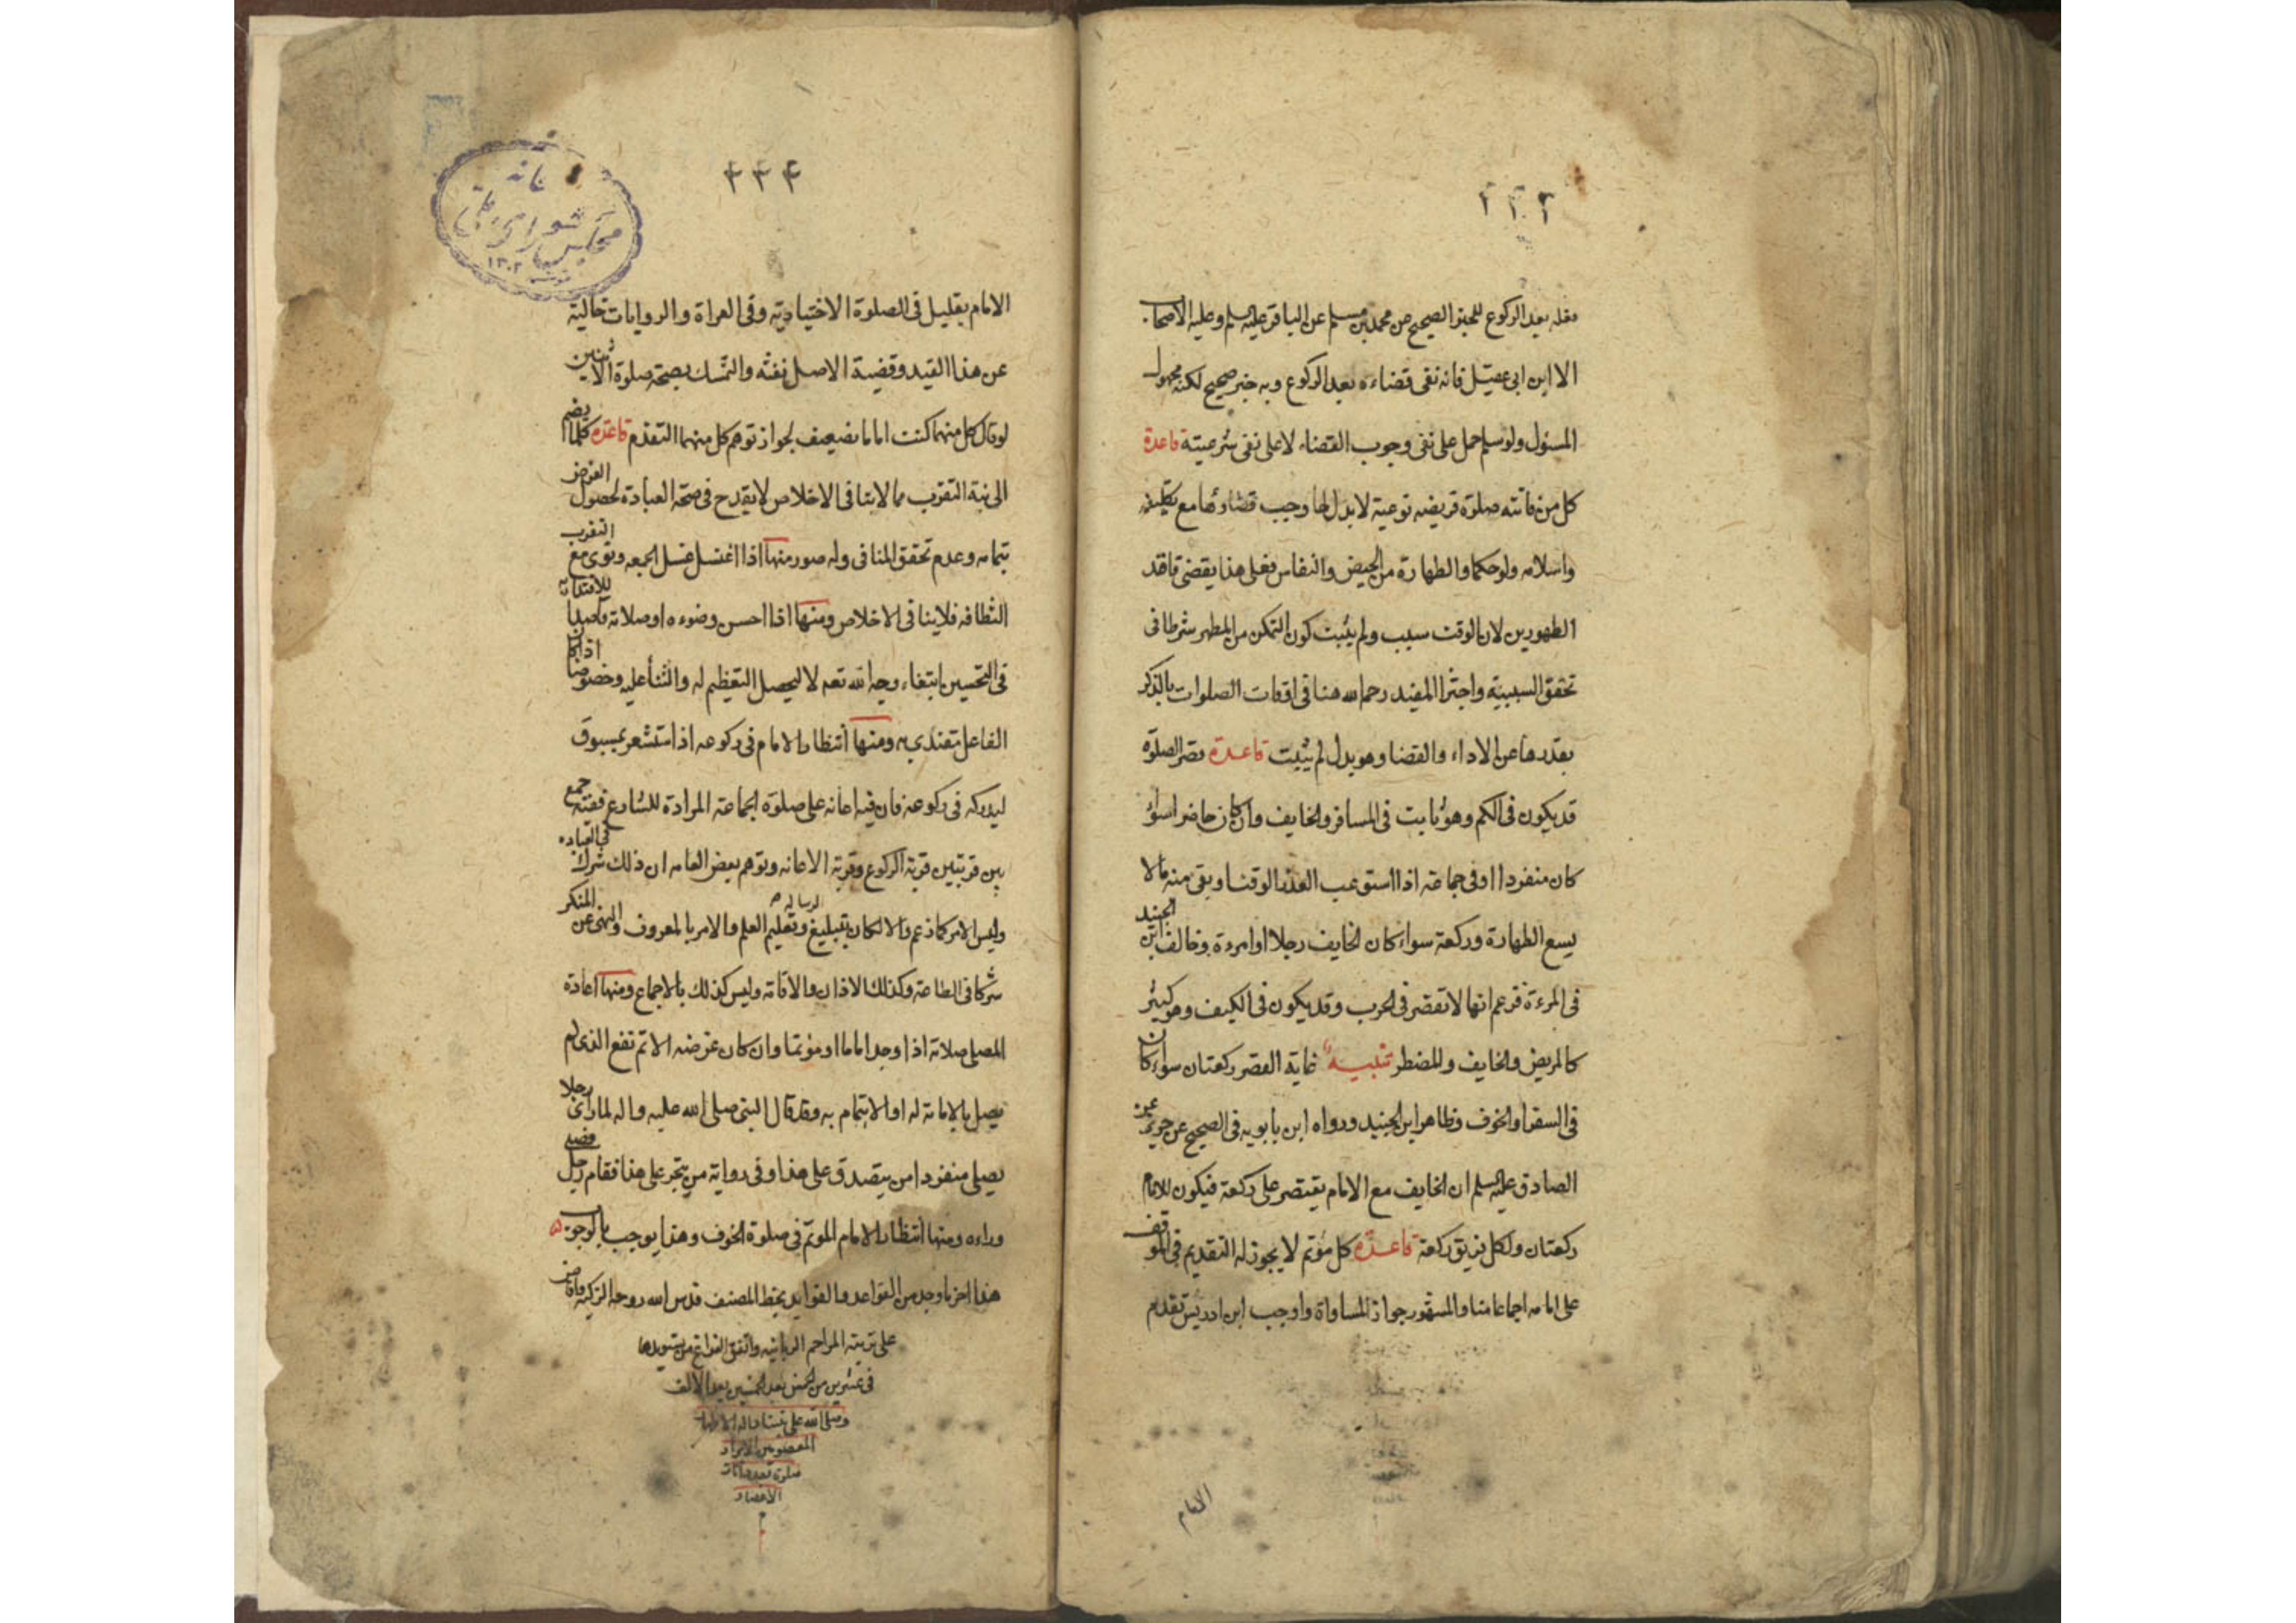 فعله بعد الركوع للخبر الصحيح عن محمد بن مسلم عن الباقر عليه السلم وعليه الاصحاب
الا ابن ابى عقيل فانه نفى قضاءه بعد الركوع وبه خبر صحيح لكنه مجهول
المسئول ولو سلم حمل على نفى وجوب القضاء لا على نفى شرعيته قاعدة
كل من فاتته صلوة فريضه نوعية لا بدل لها وجب قضاؤها مع تكليفه
واسلامه ولو حكما والطهارة من الحيض والنفاس فعلى هذا يقضى فاقد
الطهورين لان الوقت سبب ولم يثبت كون التمكن من المطهر شرطا فى
تحقق السببية واجتزا المفيد رحمه الله هنا فى اوقات الصلوات بالذكر
بقدرها عن الاداء والقضا وهو بدل لم يثبت قاعدة قصر الصلوة
قد يكون فى الكم وهو ثابت فى المسافر والخايف وان كان حاضرا سواء
كان منفردا او فى جماعة اذا استوعب العذر الوقت او بقى منه ما لا
يسع الطهارة وركعة سواء كان الخايف رجلا او امرءة وخالف ابن الجنيد
فى المرءة فزعم انها لا تقصر فى الحرب وقد يكون فى الكيف وهو كثير
كالمريض والخايف والمضطر تنبيه غاية القصر ركعتان سواء كان
فى السفر او الخوف وظاهر ابن الجنيد ورواه ابن بابويه فى الصحيح عن حريز عن
الصادق عليه السلم ان الخايف مع الامام يقتصر على ركعة فيكون للامام
ركعتان ولكل فريق ركعة قاعدة كل مؤتم لا يجوز له التقديم فى الموقف
على امامه اجماعا منا والمشهور جواز المساواة واوجب ابن ادريس تقدم
الامام
۳۳۴
خانه
مجلس شوراى ملى
۱۳۰۲
الامام بقليل فى الصلوة الاختيارية وفى العراة والروايات خالية
عن هذا القيد وقضية الاصل نفيه والتمسك بصحة صلوة الاثنين
لو قال كل منهما كنت اماما ضعيف لجواز توهم كل منهما التقدم قاعدة كلما يضم
الى نية التقرب مما لا ينافى الاخلاص لا يقدح فى صحة العبادة لحصول الغرض
بتمامه وعدم تحقق المنافى وله صور منها اذا اغتسل غسل الجمعه ونوى مع التقرب
النظافه فلا ينافى الاخلاص ومنها اذا احسن وضوءه او صلاته قاصدا للاقتداء به
فى التحسين ابتغاء وجه الله تعه لا ليحصل التعظيم له والثنا عليه وخصوصا اذا كان
الفاعل مقتدى به ومنها انتظار الامام فى ركوعه اذا استشعر بمسبوق
ليدركه فى ركوعه فان فيه اعانه على صلوة الجماعة المرادة للشارع ففيه جمع
بين قربتين قربة الركوع وقربة الاعانه وتوهم بعض العامه ان ذلك شرك فى العباده
وليس الامر كما زعم والا لكان تبليغ الرساله وتعليم العلم والامر بالمعروف والنهى عن المنكر
شركا فى الطاعة وكذلك الاذان والاقامة وليس كذلك بالاجماع ومنها اعادة
المصلى صلاته اذا وجد اماما او مؤتما وان كان غرضه الاتم نفع الذى لم
يصل بالامامة له او الايتمام به وقد قال النبى صلى الله عليه واله لما راى رجلا
يصلى منفردا من يتصدق على هذا وفى رواية من يتجر على هذا فقام رجل فصلى
وراءه ومنها انتظار الامام المؤتم فى صلوة الخوف وهذا يوجب بالوجوب
هذا اخر ما وجد من القواعد والفوايد بخط المصنف قدس الله روحه الزكيه وافاض
على تربته المراحم الربانيه واتفق الفراغ من تسويدها
وصلى الله على نبينا واله الاطهار
المعصومين الابرار
الاعصار